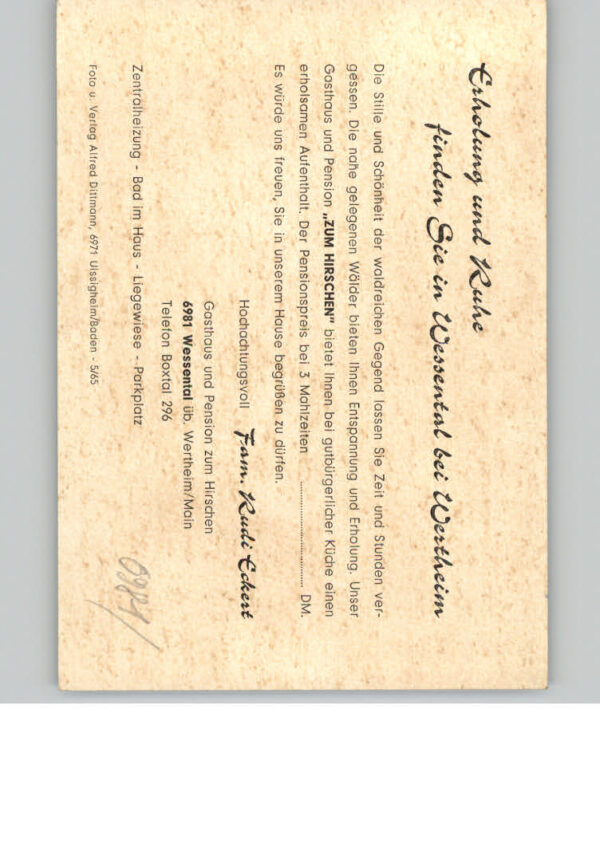 Erholung und Ruhe
finden Sie in Wessental bei Wertheim
Die Stille und Schönheit der waldreichen Gegend lassen Sie Zeit und Stunden ver-
gessen. Die nahe gelegenen Wälder bieten Ihnen Entspannung und Erholung. Unser
Gasthaus und Pension „ZUM HIRSCHEN" bietet Ihnen bei gutbürgerlicher Küche einen
erholsamen Aufenthalt. Der Pensionspreis bei 3 Mahlzeiten ........................ DM.
Es würde uns freuen, Sie in unserem Hause begrüßen zu dürfen.
Hochachtungsvoll Fam. Rudi Eckert
Gasthaus und Pension zum Hirschen
6981 Wessental üb. Wertheim/Main
Telefon Boxtal 296
Zentralheizung - Bad im Haus - Liegewiese - Parkplatz
Foto u. Verlag Alfred Dittmann, 6971 Uissigheim/Baden - 5/65